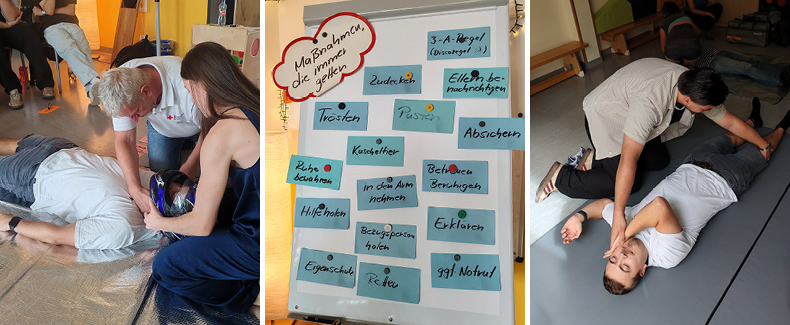 Maßnahmen,
die immer
gelten
3-A-Regel
(Discoregel :))
Zudecken
Eltern be-
nachrichtigen
Trösten
Pusten
Absichern
Kuscheltier
Ruhe
bewahren
Betreuen
Beruhigen
in den Arm
nehmen
Hilfe holen
Erklären
Bezugsperson
holen
Eigenschutz
Retten
ggf. Notruf